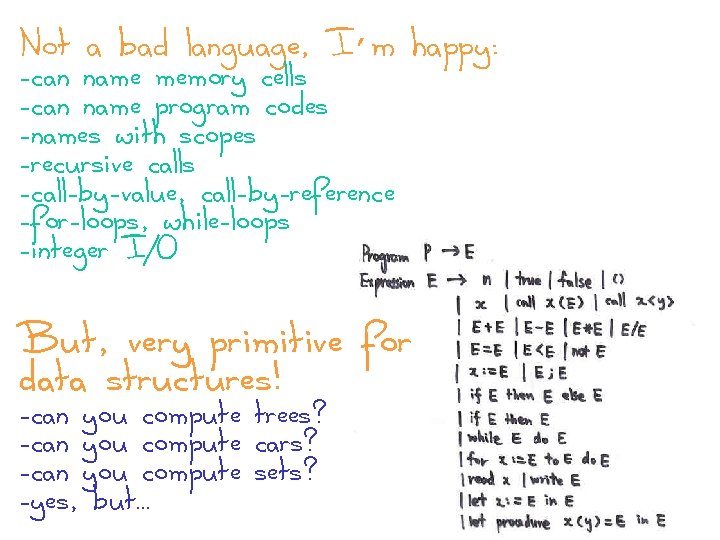 Not a bad language, I'm happy:
-can name memory cells
-can name program codes
-names with scopes
-recursive calls
-call-by-value, call-by-reference
-for-loops, while-loops
-integer I/O
But, very primitive for
data structures!
-can you compute trees?
-can you compute cars?
-can you compute sets?
-yes, but...
Program P → E
Expression E → n | true | false | ()
| x | call x(E) | call x<y>
| E+E | E-E | E*E | E/E
| E=E | E<E | not E
| x:=E | E;E
| if E then E else E
| if E then E
| while E do E
| for x:=E to E do E
| read x | write E
| let x:=E in E
| let procedure x(y)=E in E